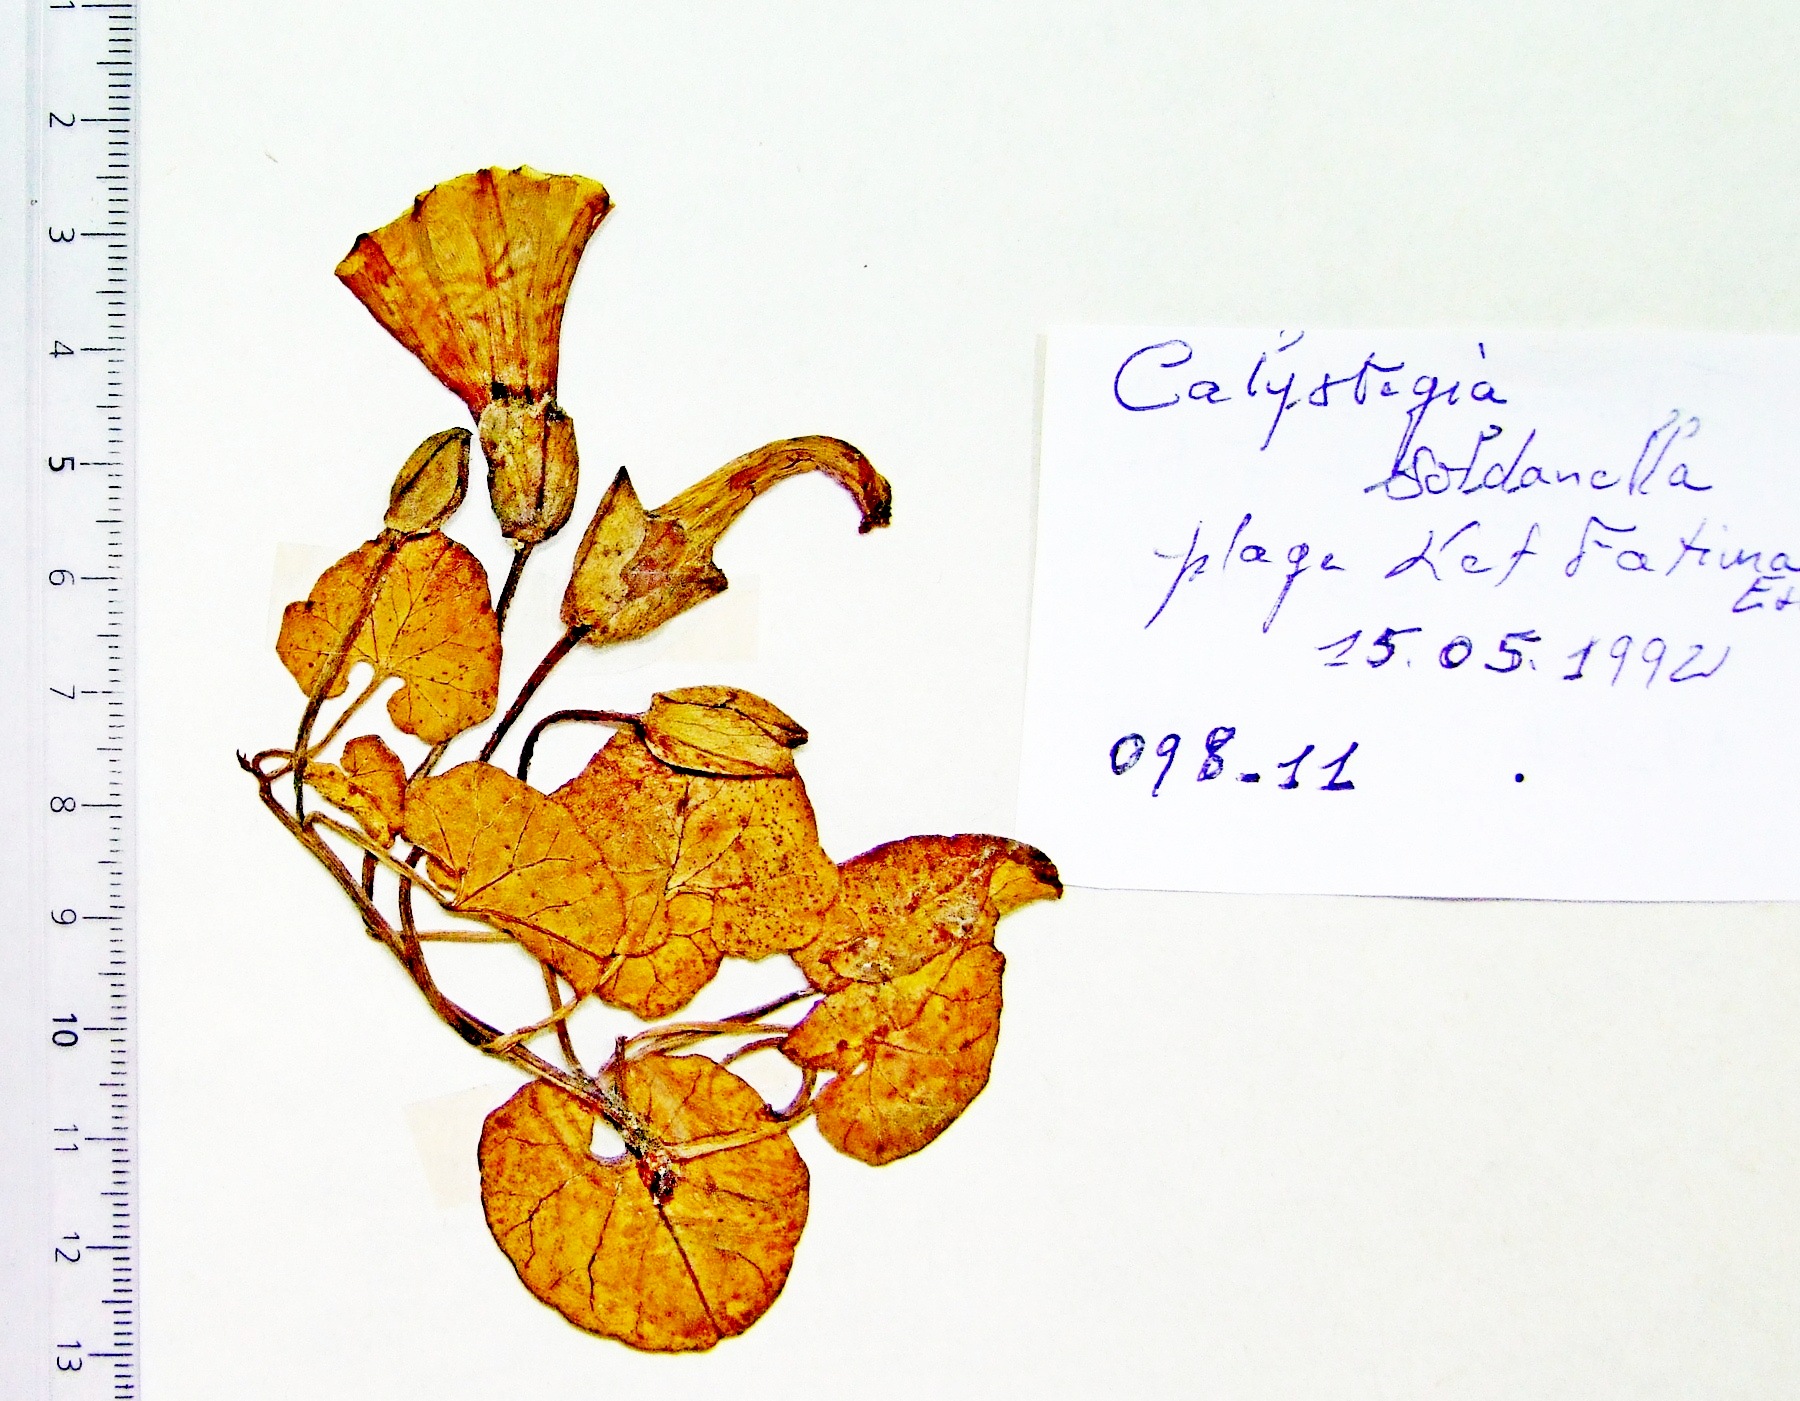 1
2
3
4
5
6
7
8
9
10
11
12
13
Calystegia
soldanella
plage Kef Fatima
15.05.1992
098-11 .